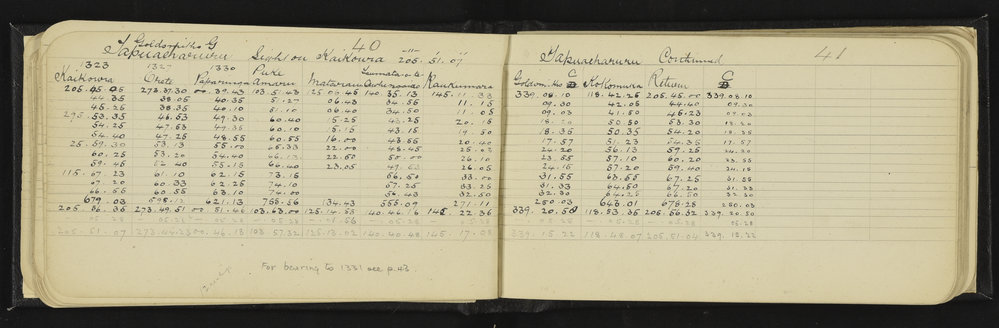 Goldsmiths G 40
Tapuaeharuru Sight on Kaikowira 205. 51. 07
1323 1327 1330 Puke
Kaikowira Orete Paparunga Amaru Mataraui Raukumara
205.45.05 273.37.30 00.39.43 103.5.43 125.05.45 140.35.13 145.11.33
44.35 38.05 40.35 5.27 06.43 34.56 11.15
45.25 38.35 40.10 51.10 06.40 34.50 11.05
295.53.35 46.53 49.30 60.40 15.25 43.25 20.15
54.25 47.53 49.35 60.10 15.15 43.15 19.50
54.40 47.25 48.55 60.55 16.00 43.55 20.40
25.59.30 53.13 55.00 65.33 22.00 48.45 25.07
60.25 53.20 54.40 66.13 22.50 50.00 26.10
59.45 52.40 55.15 66.40 23.05 26.05
115.07.23 61.10 62.15 73.15 56.50 33.00
07.20 60.33 62.25 74.10 57.25 33.25
06.55 60.55 63.10 74.00 56.43 32.50
679.03 598.12 621.13 755.56 134.43 555.09 271.11
205.56.35 273.49.51 00.51.46 103.63.00 125.14.58 140.46.16 145.22.36
05.28 05.28 05.28 05.28 05.28 05.28
205.51.07 273.44.23 00.46.13 103.57.32 125.13.02 140.40.48 145.17.08
For bearing to 1331 see p.43
Tapuaeharuru Continued 41
Kohomura Return C
339.08.10 118.42.25 205.45.00 339.08.10
09.30 42.05 44.40 09.30
09.03 41.50 45.23 09.03
18.20 50.50 53.30 18.20
18.35 50.35 54.20 18.35
17.57 51.23 54.35 17.57
24.20 56.13 59.25 24.20
23.55 57.10 60.20 23.55
24.15 57.20 59.40 24.15
31.55 63.55 67.25 31.55
31.33 64.50 67.20 31.33
32.30 64.25 66.50 32.30
250.03 643.01 678.28 250.03
339.20.50 118.53.35 205.56.32 339.20.50
05.28 05.28 05.28 05.28
339.15.22 118.48.07 205.51.04 339.15.22